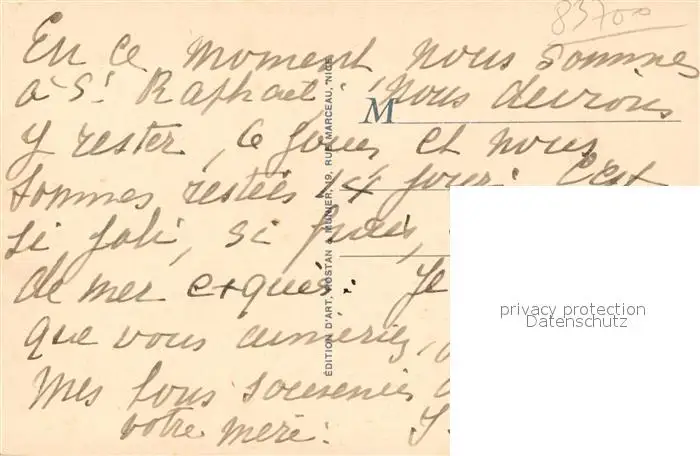 83700
En ce moment nous sommes
à St Raphaël. nous devrions
M
y rester, 6 jours et nous
sommes restées 14 jours. C'est
si joli, si frais,
de mer exquis. Je
que vous aimeriez,
Mes bons souvenirs
votre mère.
ÉDITION D'ART, ROSTAN & MUNIER, 19, RUE MARCEAU, NICE
privacy protection
Datenschutz